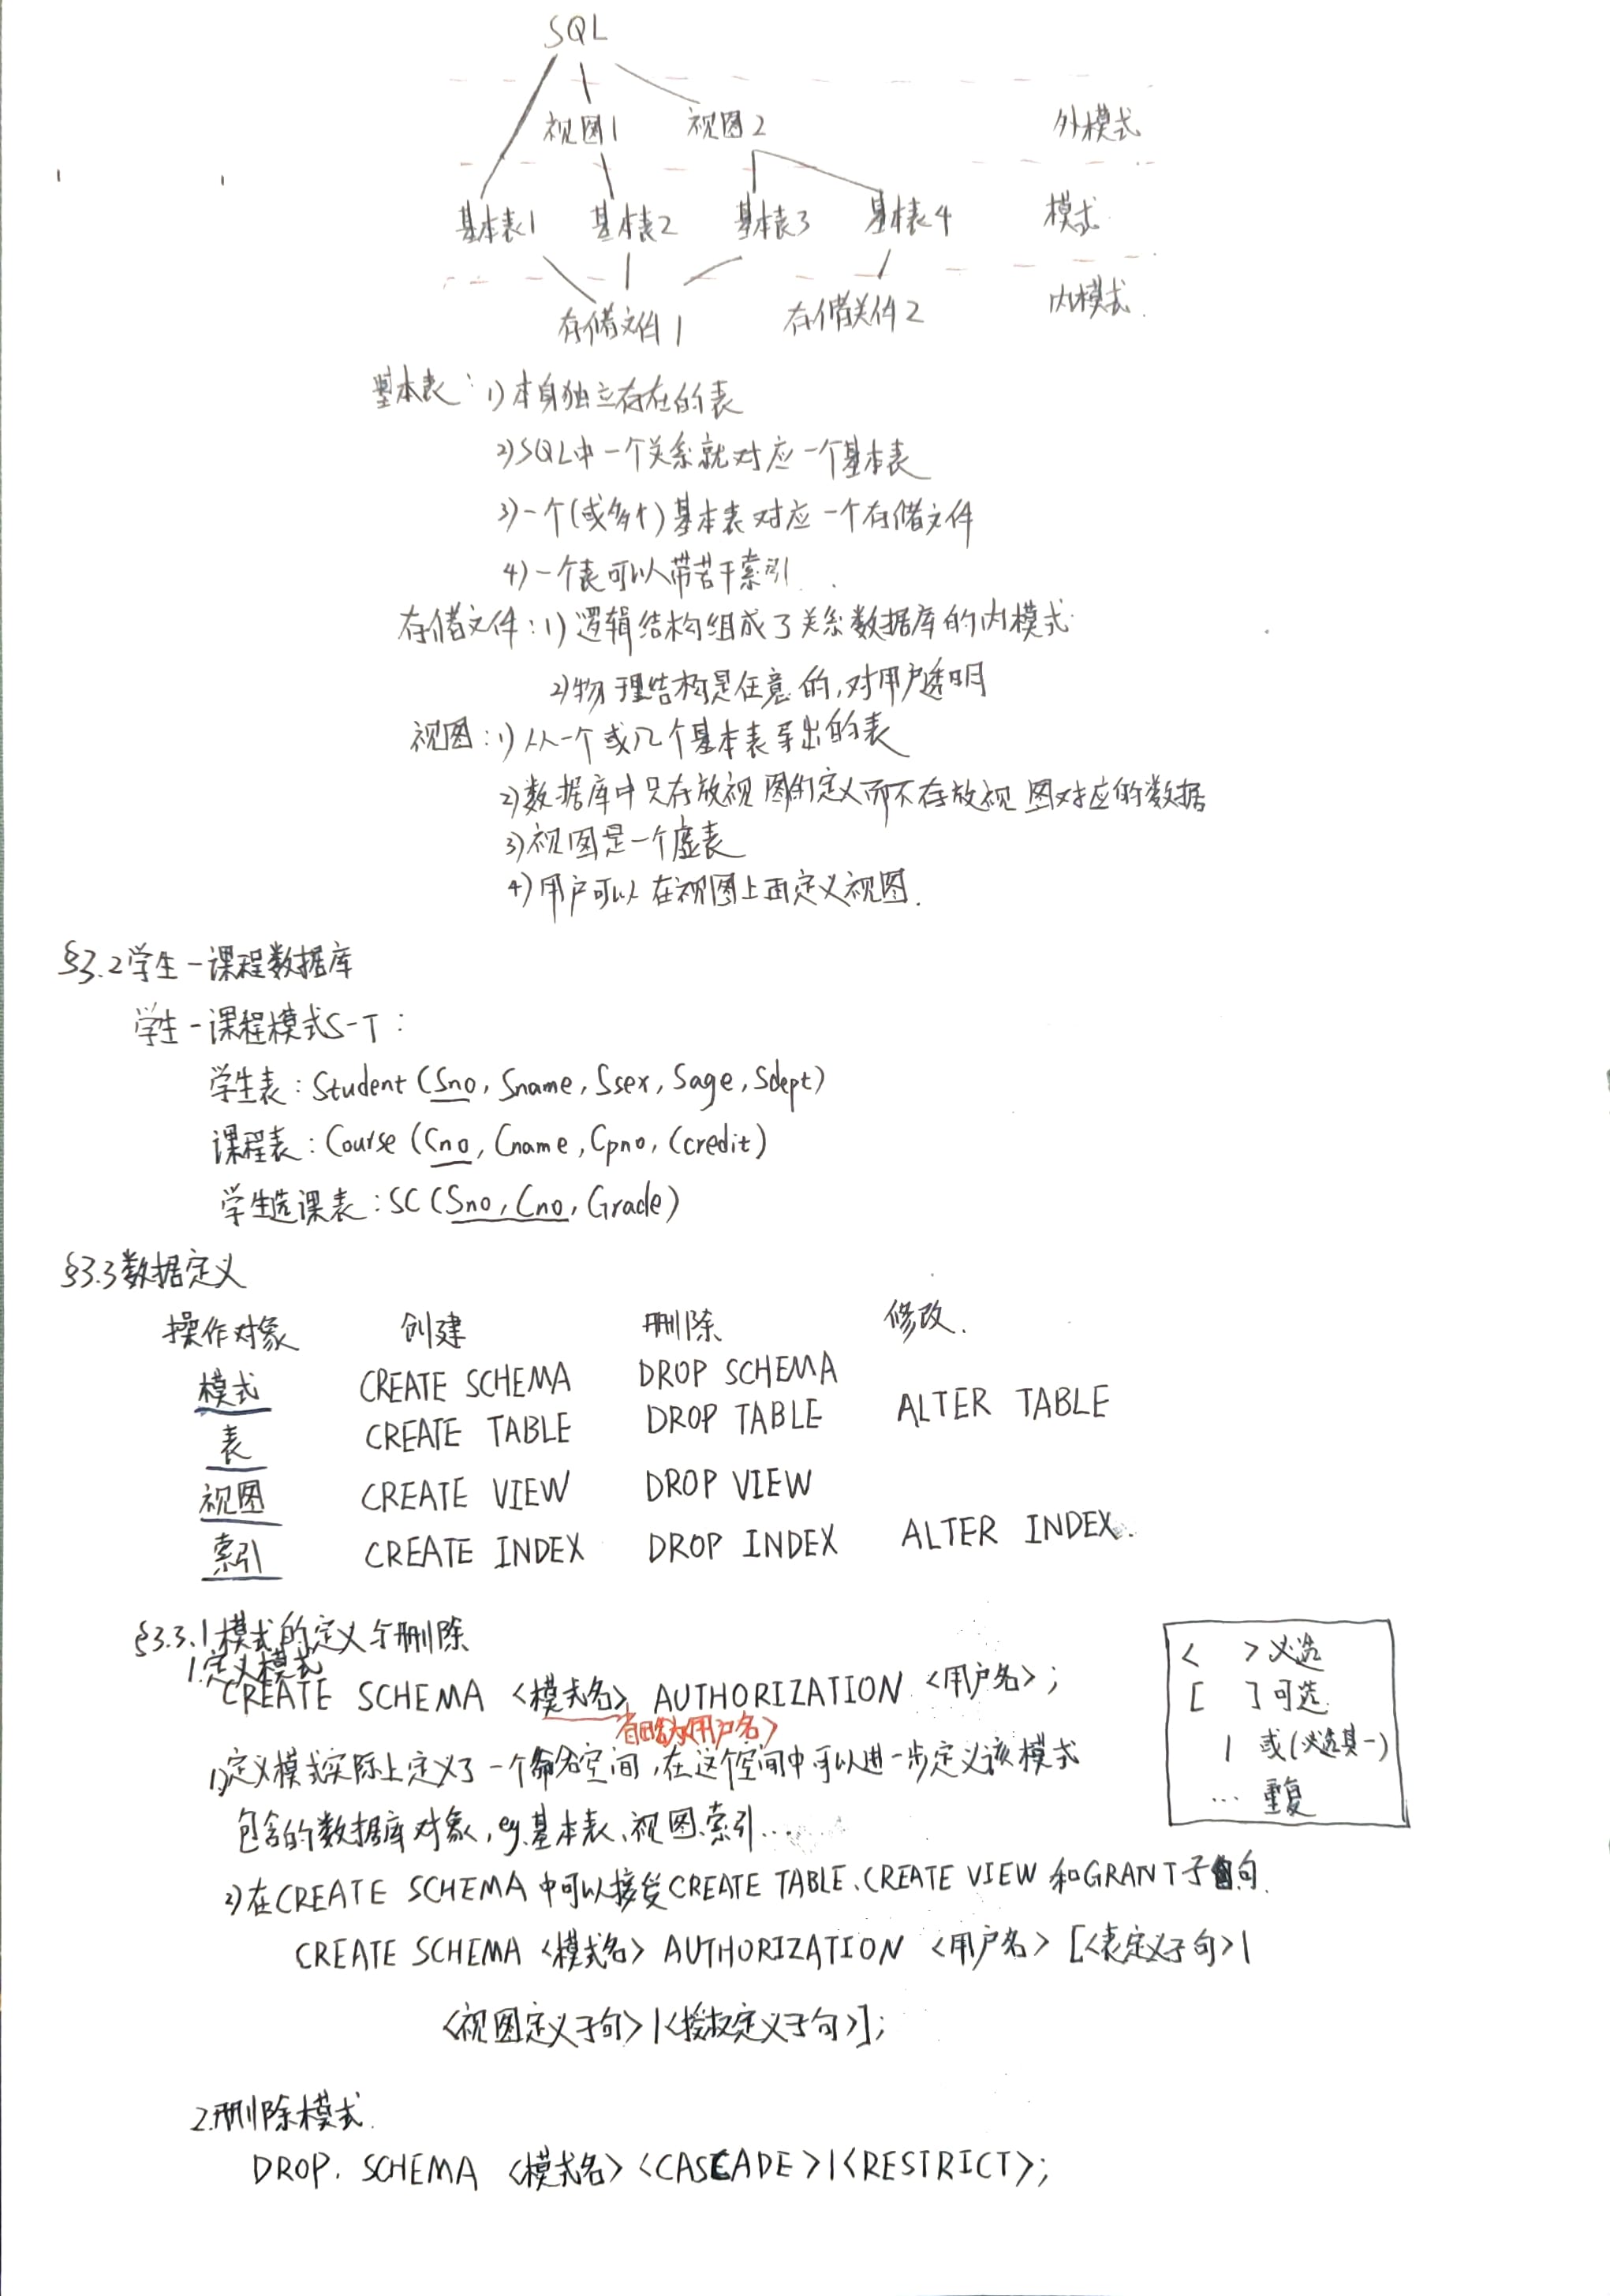 SQL
视图1 视图2 外模式
基本表1 基本表2 基本表3 基本表4 模式
存储文件1 存储文件2 内模式
基本表:1)本身独立存在的表
2)SQL中一个关系就对应一个基本表
3)一个(或多个)基本表对应一个存储文件
4)一个表可以带若干索引
存储文件:1)逻辑结构组成了关系数据库的内模式
2)物理结构是任意的,对用户透明
视图:1)从一个或几个基本表导出的表
2)数据库中只存放视图的定义而不存放视图对应的数据
3)视图是一个虚表
4)用户可以在视图上再定义视图.
§3.2学生-课程数据库
学生-课程模式S-T:
学生表:Student(Sno, Sname, Ssex, Sage, Sdept)
课程表:Course(Cno, Cname, Cpno, Ccredit)
学生选课表:SC(Sno, Cno, Grade)
§3.3数据定义
操作对象 创建 删除 修改.
模式 CREATE SCHEMA DROP SCHEMA
表 CREATE TABLE DROP TABLE ALTER TABLE
视图 CREATE VIEW DROP VIEW
索引 CREATE INDEX DROP INDEX ALTER INDEX.
§3.3.1模式的定义与删除
1.定义模式
CREATE SCHEMA <模式名> AUTHORIZATION <用户名>;
<用户名>
1)定义模式实际上定义了一个命名空间,在这个空间中可以进一步定义该模式
包含的数据库对象,eg.基本表、视图、索引...
2)在CREATE SCHEMA中可以接受CREATE TABLE、CREATE VIEW和GRANT子句.
CREATE SCHEMA <模式名> AUTHORIZATION <用户名> [<表定义子句>|
<视图定义子句>|<授权定义子句>];
2.删除模式.
DROP. SCHEMA <模式名> <CASCADE>|<RESTRICT>;
< >必选
[ ]可选
| 或(必选其一)
... 重复